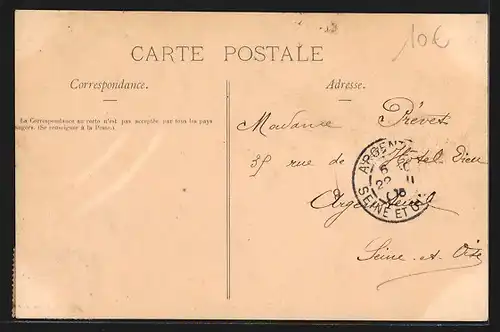 10€
CARTE POSTALE
Correspondance.
Adresse.
La Correspondance au recto n'est pas acceptée par tous les pays
(Se renseigner à la Poste).
Madame Prévet
35 rue de l'Hotel Dieu
Argenteuil
Seine-et-Oise
ARGENT
22 11
SEINE ET O